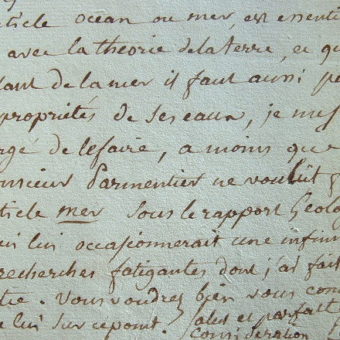 article ocean ou mer, est essenti
avec la théorie de la terre, et qu
lant de la mer il faut aussi pa
propriétés de ses eaux, je me s
rgé de le faire, a moins que
onsieur Parmentier ne voulût f
article mer sous le rapport Geolog
ui lui occasionnerait une infin
recherches fatigantes dont j'ai fait
tie. Vous voudrez bien vous con
e lui sur ce point. Salut et parfait
considération